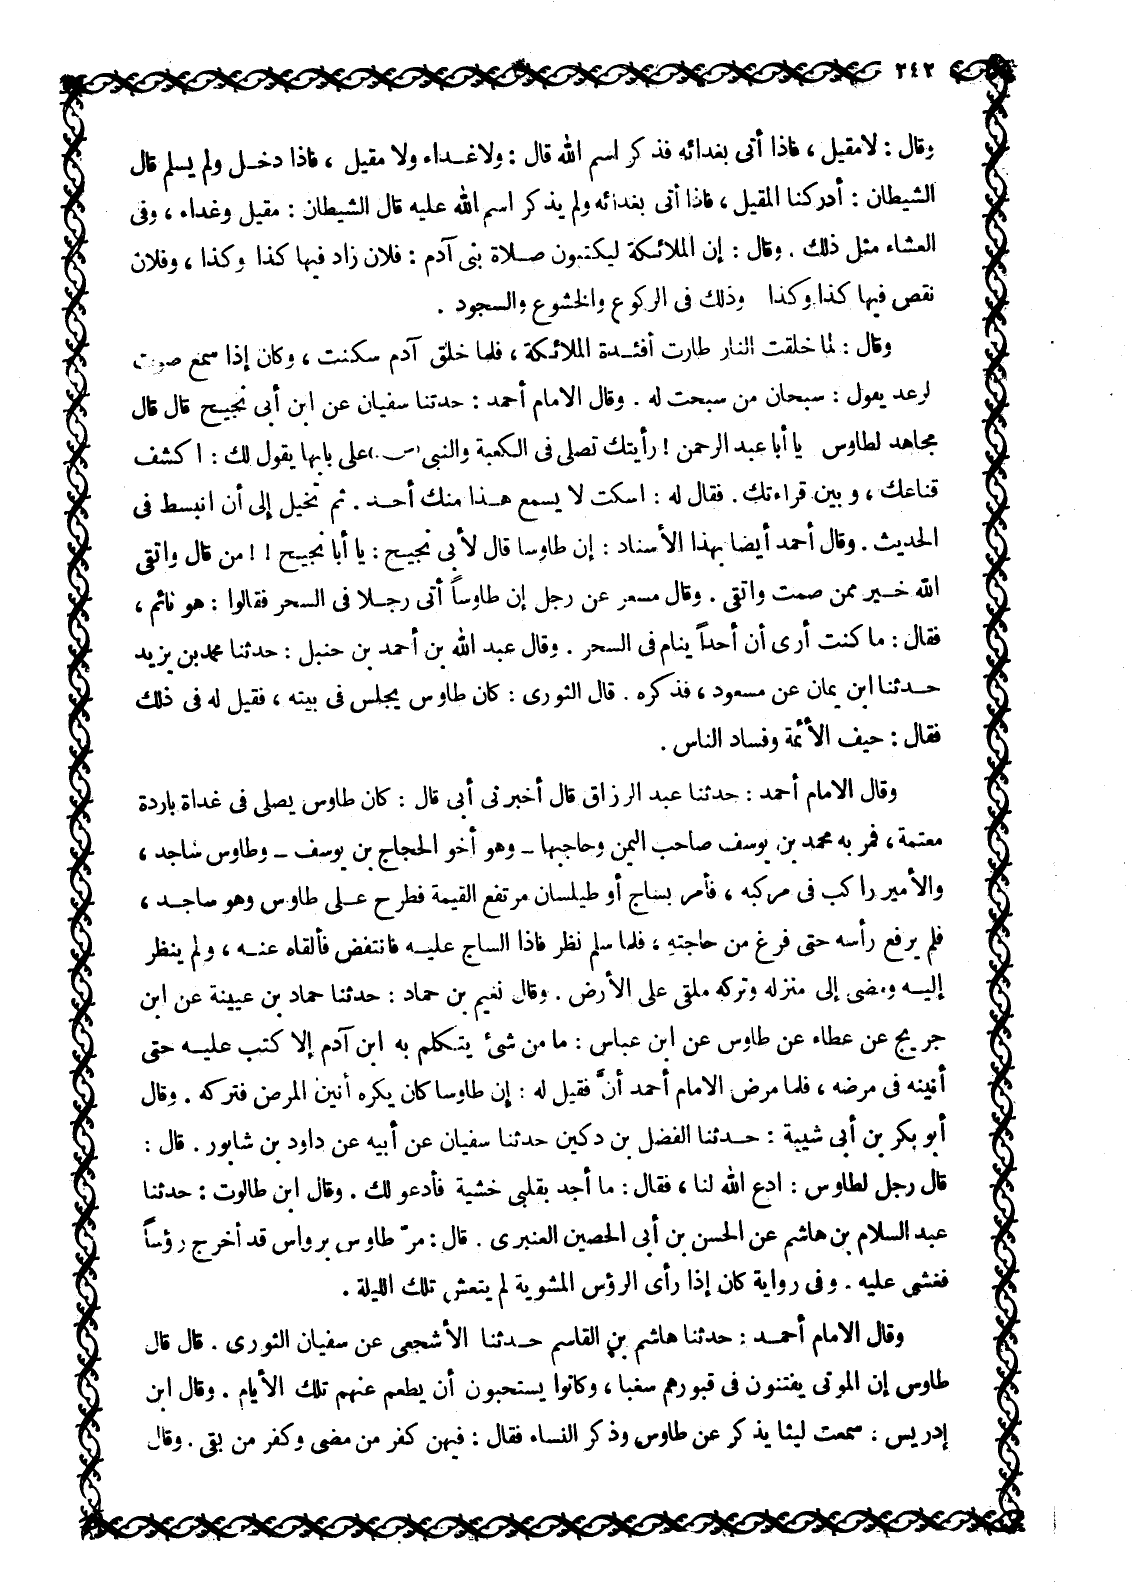 ٢٤٢
وقال : لامقيل ، فاذا أتى بغدائه فذكر اسم الله قال : ولاغداء ولا مقيل ، فاذا دخل ولم يسلم قال
الشيطان : أدركنا المقيل ، فاذا أتى بغدائه ولم يذكر اسم الله عليه قال الشيطان : مقيل وغداء ، وفى
العشاء مثل ذلك . وقال : إن الملائكة ليكتبون صلاة بنى آدم : فلان زاد فيها كذا وكذا ، وفلان
نقص فيها كذا وكذا وذلك فى الركوع والخشوع والسجود .
وقال : لما خلقت النار طارت أفئدة الملائكة ، فلما خلق آدم سكنت ، وكان إذا سمع صوت
لرعد يقول : سبحان من سبحت له . وقال الامام أحمد : حدثنا سفيان عن ابن أبى نجيح قال قال
مجاهد لطاوس يا أبا عبد الرحمن ! رأيتك تصلى فى الكعبة والنبى (س) على بابها يقول لك : اكشف
قناعك ، وبين قراءتك . فقال له : اسكت لا يسمع هذا منك أحد . ثم تخيل إلى أن انبسط فى
الحديث . وقال أحمد أيضا بهذا الأسناد : إن طاوسا قال لأبى نجيح : يا أبا نجيح ! ! من قال واتقى
الله خير ممن صمت واتقى . وقال مسعر عن رجل إن طاوساً أتى رجلا فى السحر فقالوا : هو نائم ،
فقال : ما كنت أرى أن أحداً ينام فى السحر . وقال عبد الله بن أحمد بن حنبل : حدثنا محمد بن يزيد
حدثنا ابن يمان عن مسعود ، فذكره . قال الثورى : كان طاوس يجلس فى بيته ، فقيل له فى ذلك
فقال : حيف الأئمة وفساد الناس .
وقال الامام أحمد : حدثنا عبد الرزاق قال أخبرنى أبى قال : كان طاوس يصلى فى غداة باردة
معتمة ، فمر به محمد بن يوسف صاحب اليمن وحاجبها ــ وهو أخو الحجاج بن يوسف ــ وطاوس ساجد ،
والأمير راكب فى مركبه ، فأمر بساج أو طيلسان مرتفع القيمة فطرح على طاوس وهو ساجد ،
فلم يرفع رأسه حتى فرغ من حاجته ، فلما سلم نظر فاذا الساج عليه فانتفض فألقاه عنه ، ولم ينظر
إليه ومضى إلى منزله وتركه ملقى على الأرض . وقال نعيم بن حماد : حدثنا حماد بن عيينة عن ابن
جريج عن عطاء عن طاوس عن ابن عباس : ما من شئ يتكلم به ابن آدم إلا كتب عليه حتى
أنينه فى مرضه ، فلما مرض الامام أحمد أنَّ فقيل له : إن طاوسا كان يكره أنين المرض فتركه . وقال
أبو بكر بن أبى شيبة : حدثنا الفضل بن دكين حدثنا سفيان عن أبيه عن داود بن شابور . قال :
قال رجل لطاوس : ادع الله لنا ، فقال : ما أجد بقلبى خشية فأدعو لك . وقال ابن طالوت : حدثنا
عبد السلام بن هاشم عن الحسن بن أبى الحصين العنبرى . قال : مرّ طاوس برواس قد أخرج رؤساً
فغشى عليه . وفى رواية كان إذا رأى الرؤس المشوية لم يتعش تلك الليلة .
وقال الامام أحمد : حدثنا هاشم بن القاسم حدثنا الأشجعى عن سفيان الثورى . قال قال
طاوس إن الموتى يفتنون فى قبورهم سغبا ، وكانوا يستحبون أن يطعم عنهم تلك الأيام . وقال ابن
إدريس : سمعت ليثا يذكر عن طاوس وذكر النساء فقال : فيهن كفر من مضى وكفر من بقى . وقال